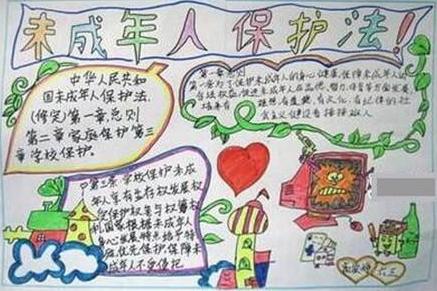 未成年人保护法!
中华人民共和
国未成年人保护法.
(修突)第一章总则
第二章家庭保护第三
章学校保护.
第一章总则
第一条为了保护未成年人的身心健康,保障未成年人的
合法权益,促进未成年人在品德、智力、体质等方面全面发展
培养有理想、有道德、有文化、有纪律的社
会主义建设者接班人
第三条学校保护未成
年人享有生存权发展权
受保护权
利国家根据未成年人
身心发展特点给予特
殊优先保护保障未
成年人不受侵犯
六三